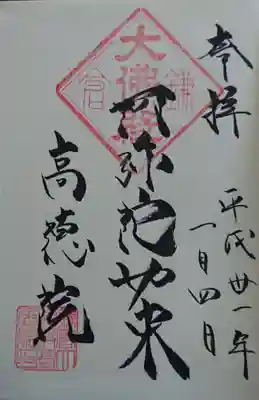 奉拝
平成卅一年
一月四日
鎌倉
大佛殿
阿弥陀如来
高徳院